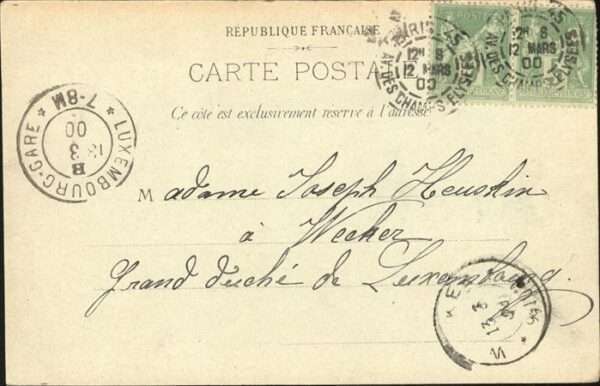 RÉPUBLIQUE FRANÇAISE
CARTE POSTA
Ce côté est exclusivement réservé à l'adresse
PARIS
12H 8
12 MARS
00
AV. DES CHAMPS ELYSEES
12H 8
12 MARS
00
LUXEMBOURG-GARE * 7-8M *
13 3
00
B
Madame Joseph Heuskin
à Wecker
Grand duché de Luxembourg.
WECKER
13 3